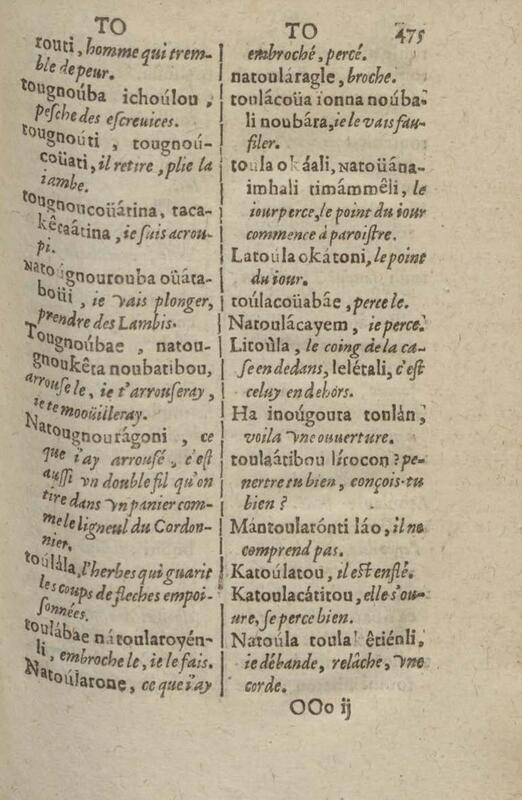 TO
TO
475
routi, homme qui trem-
ble de peur.
tougnoúba ichoúlou,
pesche des escreuices.
tougnoúti, tougnoú-
coüati, il retire, plie la
iambe.
tougnoucoüátina, taca-
kêcaátina, ie suis acrou-
pi.
Nato ignourouba oüáta-
boüi, ie vais plonger,
prendre des Lambis.
Tougnoúbae, natou-
gnoukêta noubatibou,
arrouse le, ie t'arrouseray,
ie te mooüilleray.
Natougnourágoni, ce
que i'ay arrousé, c'est
aussi vn double fil qu'on
tire dans vn panier com-
me le ligneul du Cordon-
nier.
toulála, l'herbes qui guarit
les coups de fleches empoi-
sonnées.
toulábae nátoularoyén-
li, embroche le, ie le fais.
Natoúlarone, ce que i'ay
embroché, percé.
natouláragle, broche.
toulácoüa ionna noúba-
li noubára, ie le vais fau-
filer.
toula okáali, Natoüána-
imhali timámmêli, le
iour perce, le point du iour
commence à paroistre.
Latoúla okátoni, le point
du iour.
toúlacoüabáe, perce le.
Natoulácayem, ie perce.
Litoùla, le coing de la ca-
se en dedans, lelétali, c'est
celuy en dehors.
Ha inoúgouta tonlán,
voila vne ouuerture.
toulaátibou lícocon? pe-
nertre tu bien, conçois-tu
bien?
Mántoularónti láo, il ne
comprend pas.
Katoúlatou, il est enflé.
Katoulacátitou, elle s'ou-
ure, se perce bien.
Natoúla toula êtiénli,
ie débande, relâche, vne
corde.
OOo ij